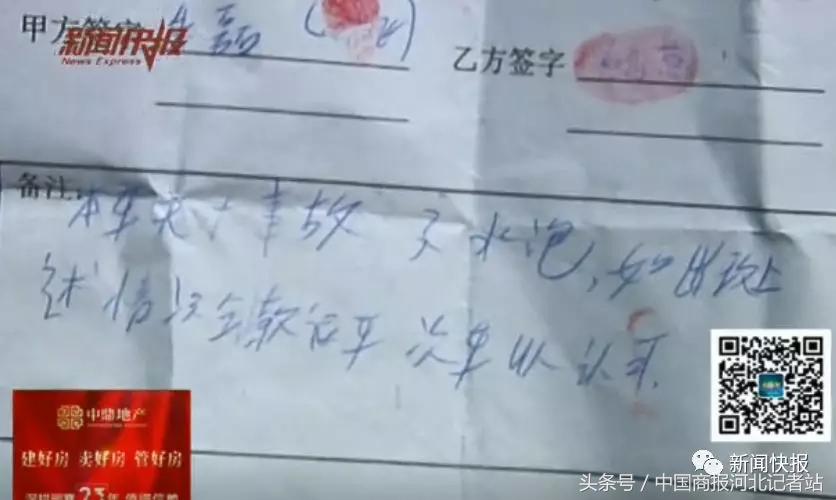 甲方签字
新闻快报
News Express
乙方签字
备注:
本车无大事故 水泡,如出现上
述情况全款退车 次车以认可.
中鼎地产
建好房 卖好房 管好房
深耕 23年 值得信赖
新闻快报
头条号/中国商报河北记者站